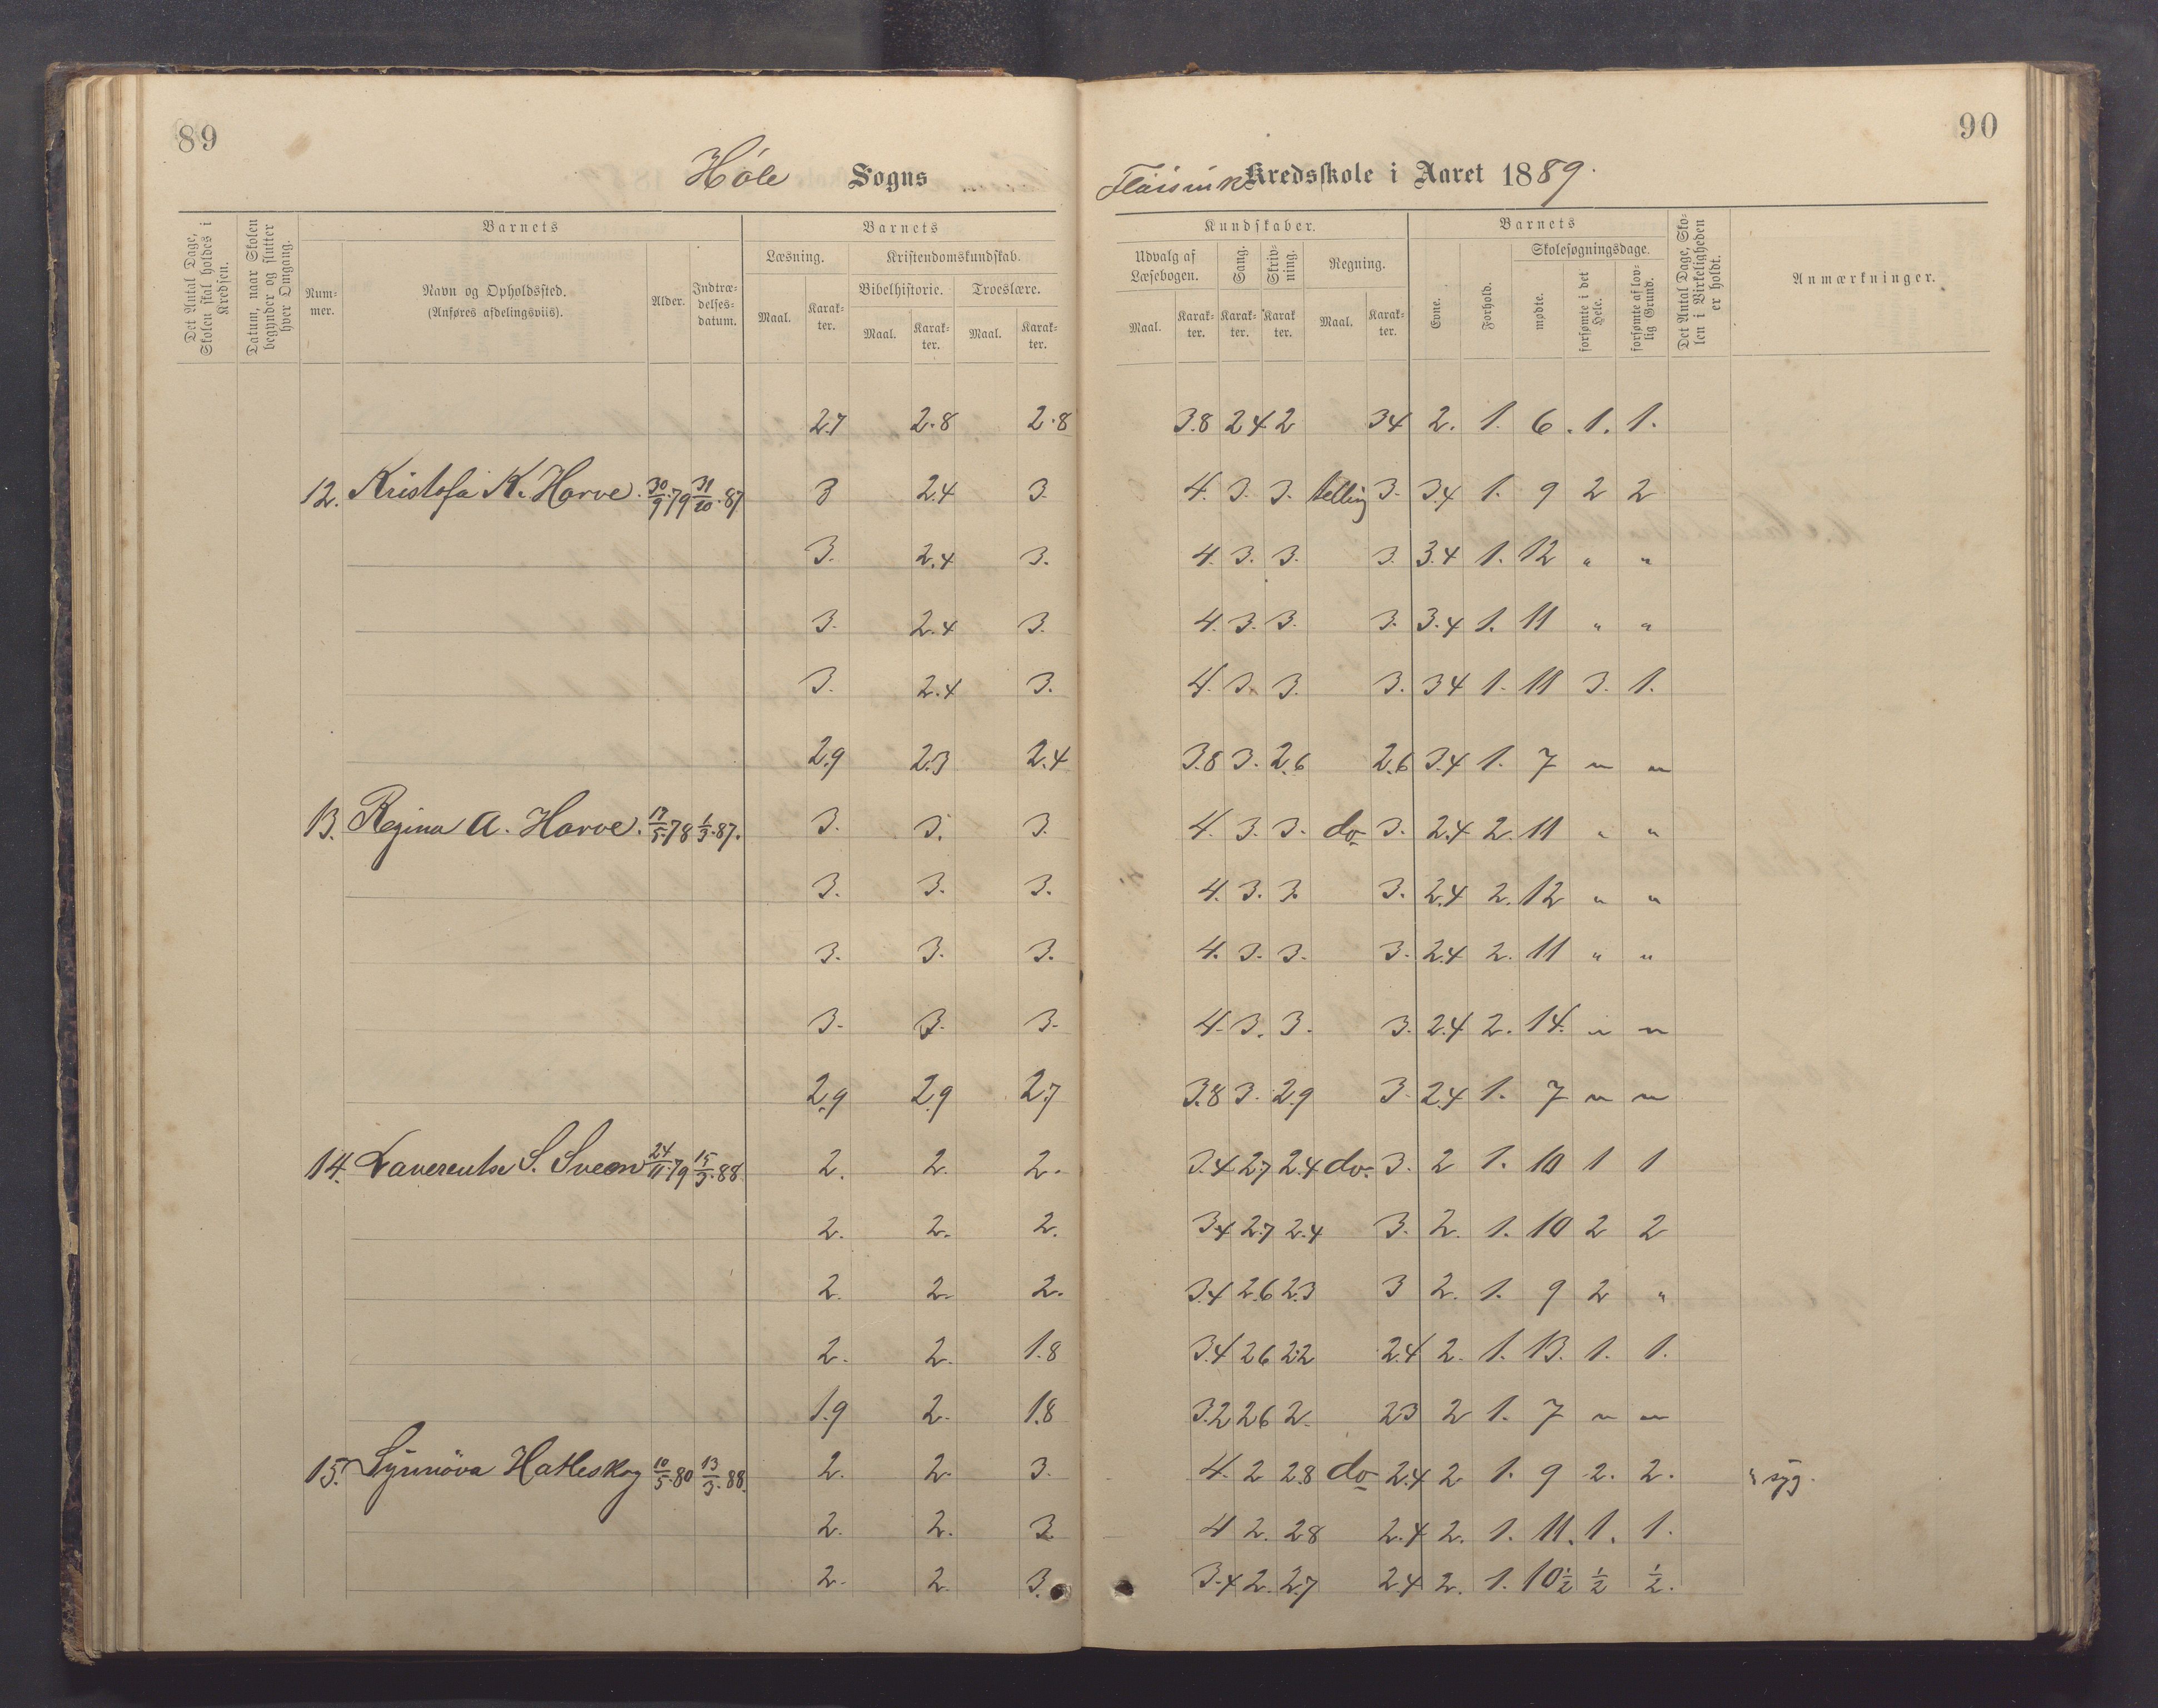 89
90
Höle Sogns
Kredsskole i Aaret 1889.
Det Antal Dage, Skolen skal holdes i Kredsen.
Datum, naar Skolen begynder og slutter hver Omgang.
Barnets
Nummer.
Navn og Opholdssted. (Anføres afdelingsviis).
Alder.
Indtrædelsesdatum.
Barnets
Læsning.
Kristendomskundskab.
Bibelhistorie.
Troeslære.
Maal. Karakter. Maal. Karakter. Maal. Karakter.
Kundskaber.
Udvalg af Læsebogen.
Sang.
Skrivning.
Regning.
Maal. Karakter. Karakter. Karakter. Maal. Karakter.
Barnets
Evne.
Forhold.
Skolesøgningsdage.
mødte.
forsømte i det Hele.
forsømte af lovlig Grund.
Det Antal Dage, Skolen i Virkeligheden er holdt.
Anmærkninger.
2.7 2.8 2.8 3.8 2.4 2 3.4 2. 1. 6. 1. 1.
12. Kristofa K. Harve. 30/9.79 31/10.87 3 2.4 3. 4. 3. 3. telling 3. 3.4 1. 9 2 2
3. 2.4 3. 4. 3. 3. 3. 3.4 1. 12 " "
3. 2.4 3. 4. 3. 3. 3. 3.4 1. 11 " "
3. 2.4 3. 4. 3. 3. 3. 3.4 1. 11 3. 1.
2.9 2.3 2.4 3.8 3. 2.6 2.6 3.4 1. 7 " "
13. Regina A. Harve. 17/5.78 1/3.87. 3. 3. 3. 4. 3. 3. do 3. 2.4 2. 11 " "
3. 3. 3. 4. 3. 3. 3. 2.4 2. 12 " "
3. 3. 3. 4. 3. 3. 3. 2.4 2. 11 " "
3. 3. 3. 4. 3. 3. 3. 2.4 2. 14. " "
2.9 2.9 2.7 3.8 3. 2.9 3. 2.4 1. 7 " "
14. S. Sveen 24/11.79 15/3.88 2. 2. 2. 3.4 2.7 2.4 do. 3. 2 1. 10 1 1
2. 2. 2. 3.4 2.7 2.4 3. 2. 1. 10 2 2
2. 2. 2. 3.4 2.6 2.3 3 2. 1. 9 2 "
2. 2. 1.8 3.4 2.6 2.2 2.4 2. 1. 13. 1. 1.
1.9 2. 1.8 3.2 2.6 2. 2.3 2 1. 7 " "
15. Synnöva Hatleskog 10/5.80 13/3.88. 2. 2. 3. 4. 2 2.8 do 2.4 2 1. 9 2. 2. syg.
2. 2. 3 4 2. 2.8 2.4 2. 1. 11. 1. 1.
2. 2. 3. 3.4 2. 2.7 2.4 2. 1. 10 1/2 1/2 1/2.